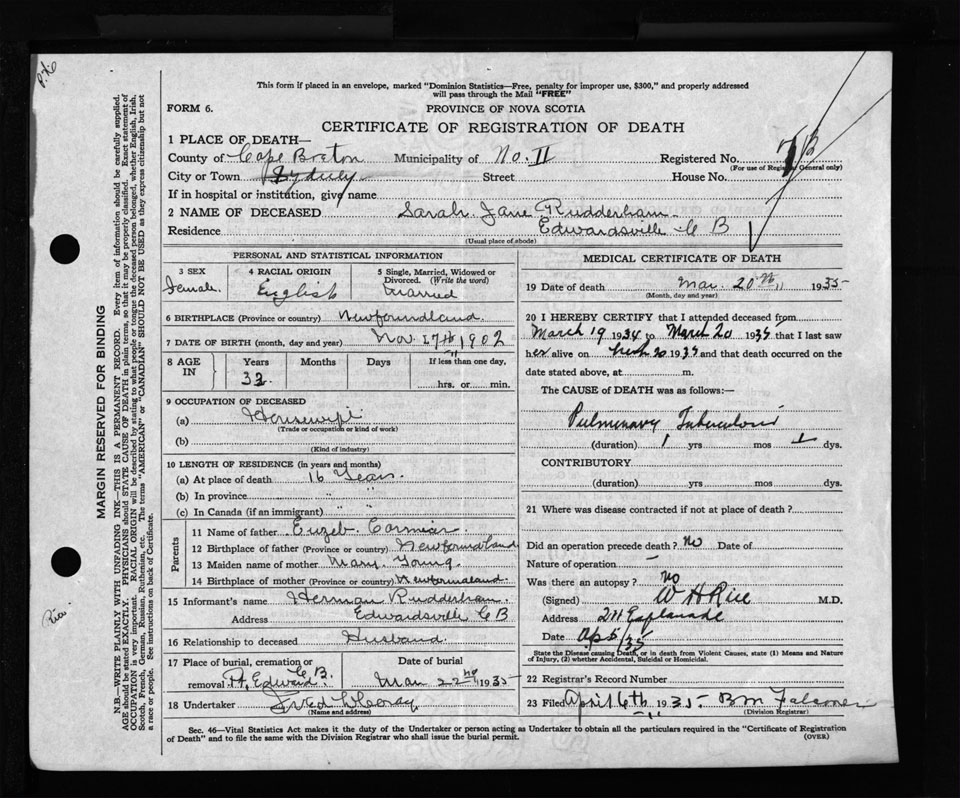 This form if placed in an envelope, marked "Dominion Statistics—Free, penalty for improper use, $300," and properly addressed
will pass through the Mail "FREE"
FORM 6.
PROVINCE OF NOVA SCOTIA
CERTIFICATE OF REGISTRATION OF DEATH
1 PLACE OF DEATH—
County of Cape Breton Municipality of No. II Registered No.
(For use of Registrar General only)
City or Town Sydney Street House No.
If in hospital or institution, give name
2 NAME OF DECEASED Sarah Jane Rudderham
Residence Edwardsville C B
(Usual place of abode)
PERSONAL AND STATISTICAL INFORMATION
3 SEX 4 RACIAL ORIGIN 5 Single, Married, Widowed or Divorced. (Write the word)
Female English Married
6 BIRTHPLACE (Province or country) Newfoundland
7 DATE OF BIRTH (month, day and year) Nov 17th 1902
8 AGE IN Years Months Days If less than one day,
32 hrs. or min.
9 OCCUPATION OF DECEASED
(a) Housewife
(Trade or occupation or kind of work)
(b)
(Kind of industry)
10 LENGTH OF RESIDENCE (in years and months)
(a) At place of death 16 Years
(b) In province " "
(c) In Canada (if an immigrant) " "
Parents
11 Name of father Cormier
12 Birthplace of father (Province or country) Newfoundland
13 Maiden name of mother Mary Young
14 Birthplace of mother (Province or country) Newfoundland
15 Informant's name Herman Rudderham
Address Edwardsville C B
16 Relationship to deceased Husband
17 Place of burial, cremation or removal Pt. Edward C.B. Date of burial Mar 22nd 1935
18 Undertaker Fred
(Name and address)
MEDICAL CERTIFICATE OF DEATH
19 Date of death Mar. 20th 1935
(Month, day and year)
20 I HEREBY CERTIFY that I attended deceased from
March 19 1934 to March 20 1935 that I last saw
her alive on 20 1935 and that death occurred on the
date stated above, at m.
The CAUSE of DEATH was as follows:—
Pulmonary Tuberculosis
(duration) 1 yrs mos dys.
CONTRIBUTORY
(duration) yrs mos dys.
21 Where was disease contracted if not at place of death?
Did an operation precede death? no Date of
Nature of operation —
Was there an autopsy? no
(Signed) W H Rice M.D.
Address 211 Esplanade
Date Ap 5/35
State the Disease causing Death, or in death from Violent Causes, state (1) Means and Nature of Injury, (2) whether Accidental, Suicidal or Homicidal.
22 Registrar's Record Number
23 Filed April 6th 1935 B M Falconer
(Division Registrar)
Sec. 46—Vital Statistics Act makes it the duty of the Undertaker or person acting as Undertaker to obtain all the particulars required in the "Certificate of Registration
of Death" and to file the same with the Division Registrar who shall issue the burial permit.
(OVER)
MARGIN RESERVED FOR BINDING
N.B.—WRITE PLAINLY WITH UNFADING INK—THIS IS A PERMANENT RECORD. Every item of information should be carefully supplied.
AGE should be stated EXACTLY. PHYSICIANS should STATE CAUSE OF DEATH in plain terms, so that it may be properly classified. Exact statement of
OCCUPATION is very important. RACIAL ORIGIN will be described by stating to what people or tongue the deceased person belonged, whether English, Irish,
Scotch, French, German, Russian, Ruthenian, etc. The terms "AMERICAN" or "CANADIAN" SHOULD NOT BE USED as they express citizenship but not
a race or people. See instructions on back of Certificate.